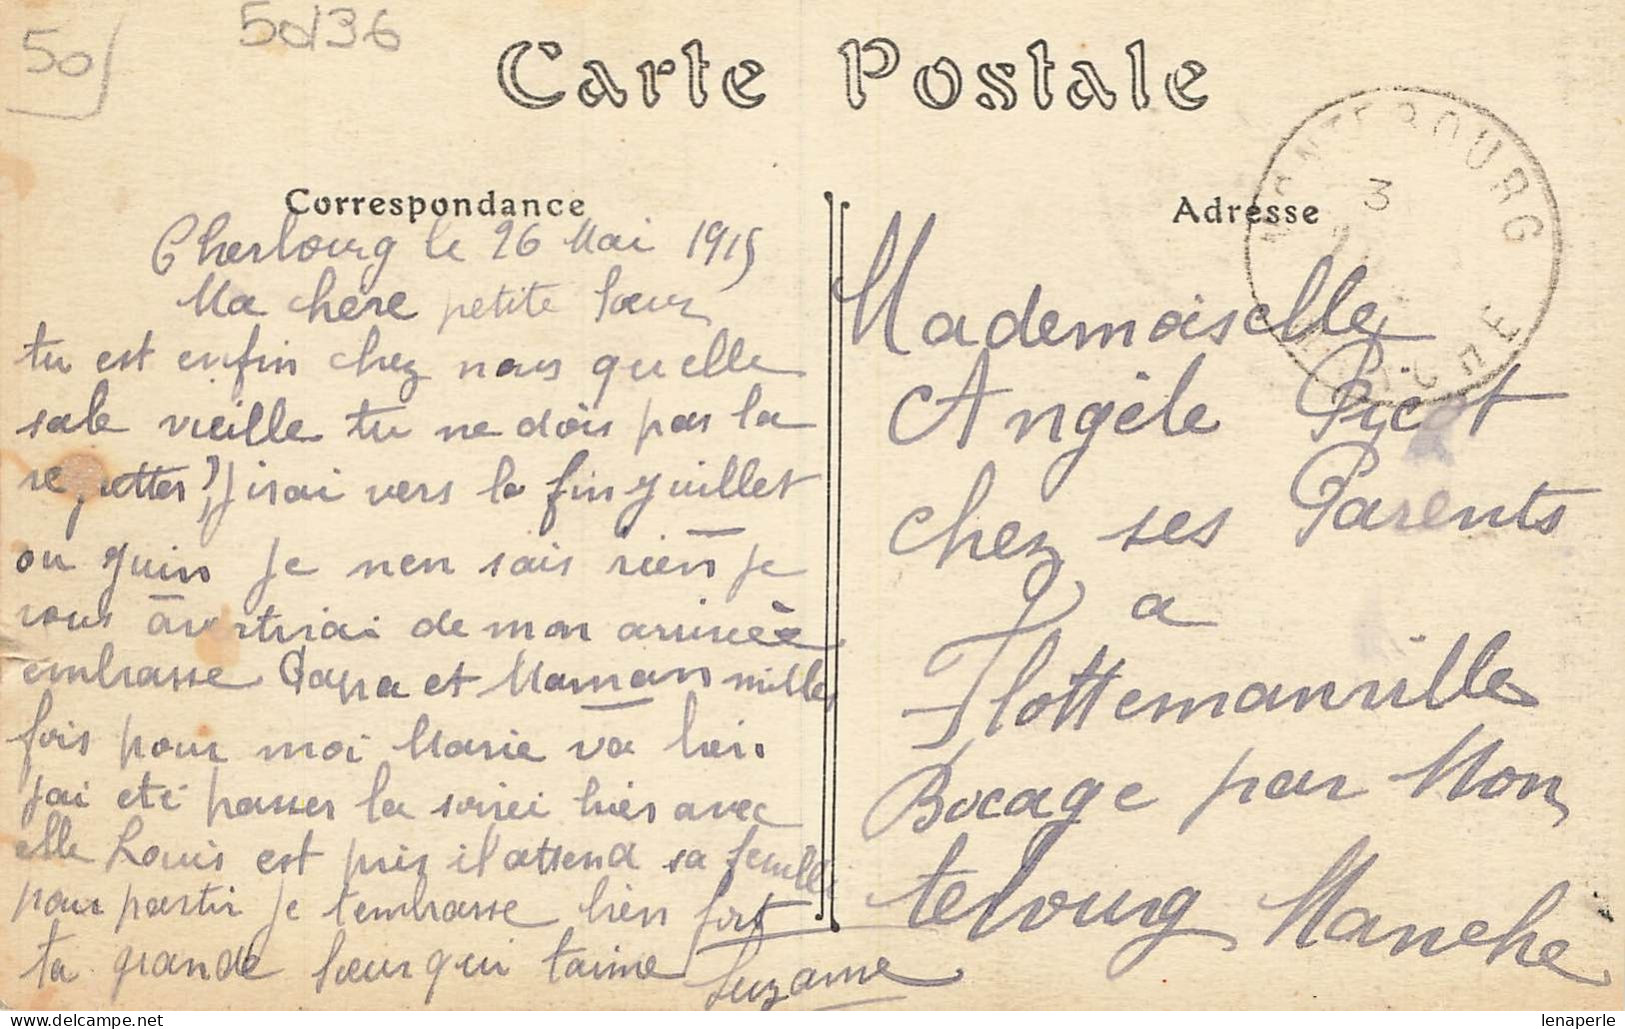 50/
50/36
Carte Postale
Correspondance
Cherbourg le 26 Mai 1915
Ma chere petite Sœur
tu est enfin chez nous quelle
sale vieille tu ne dois pas la
regretter? J irai vers la fin Juillet
ou Juin Je nen sais rien Je
vous avertirai de mon arrivèe
embrasse Papa et Maman milles
fois pour moi Marie va bien
Jai eté passer la soirei hier avec
elle Louis est pris il attend sa feuille
pour partir Je t embrasse bien fort
ta grande Sœur qui taime Suzanne
Adresse
Mademoiselle
Angèle Picot
chez ses Parents
a
Flottemanville
Bocage par Mon
tebourg Manche
MONTEBOURG
3
lenaperle